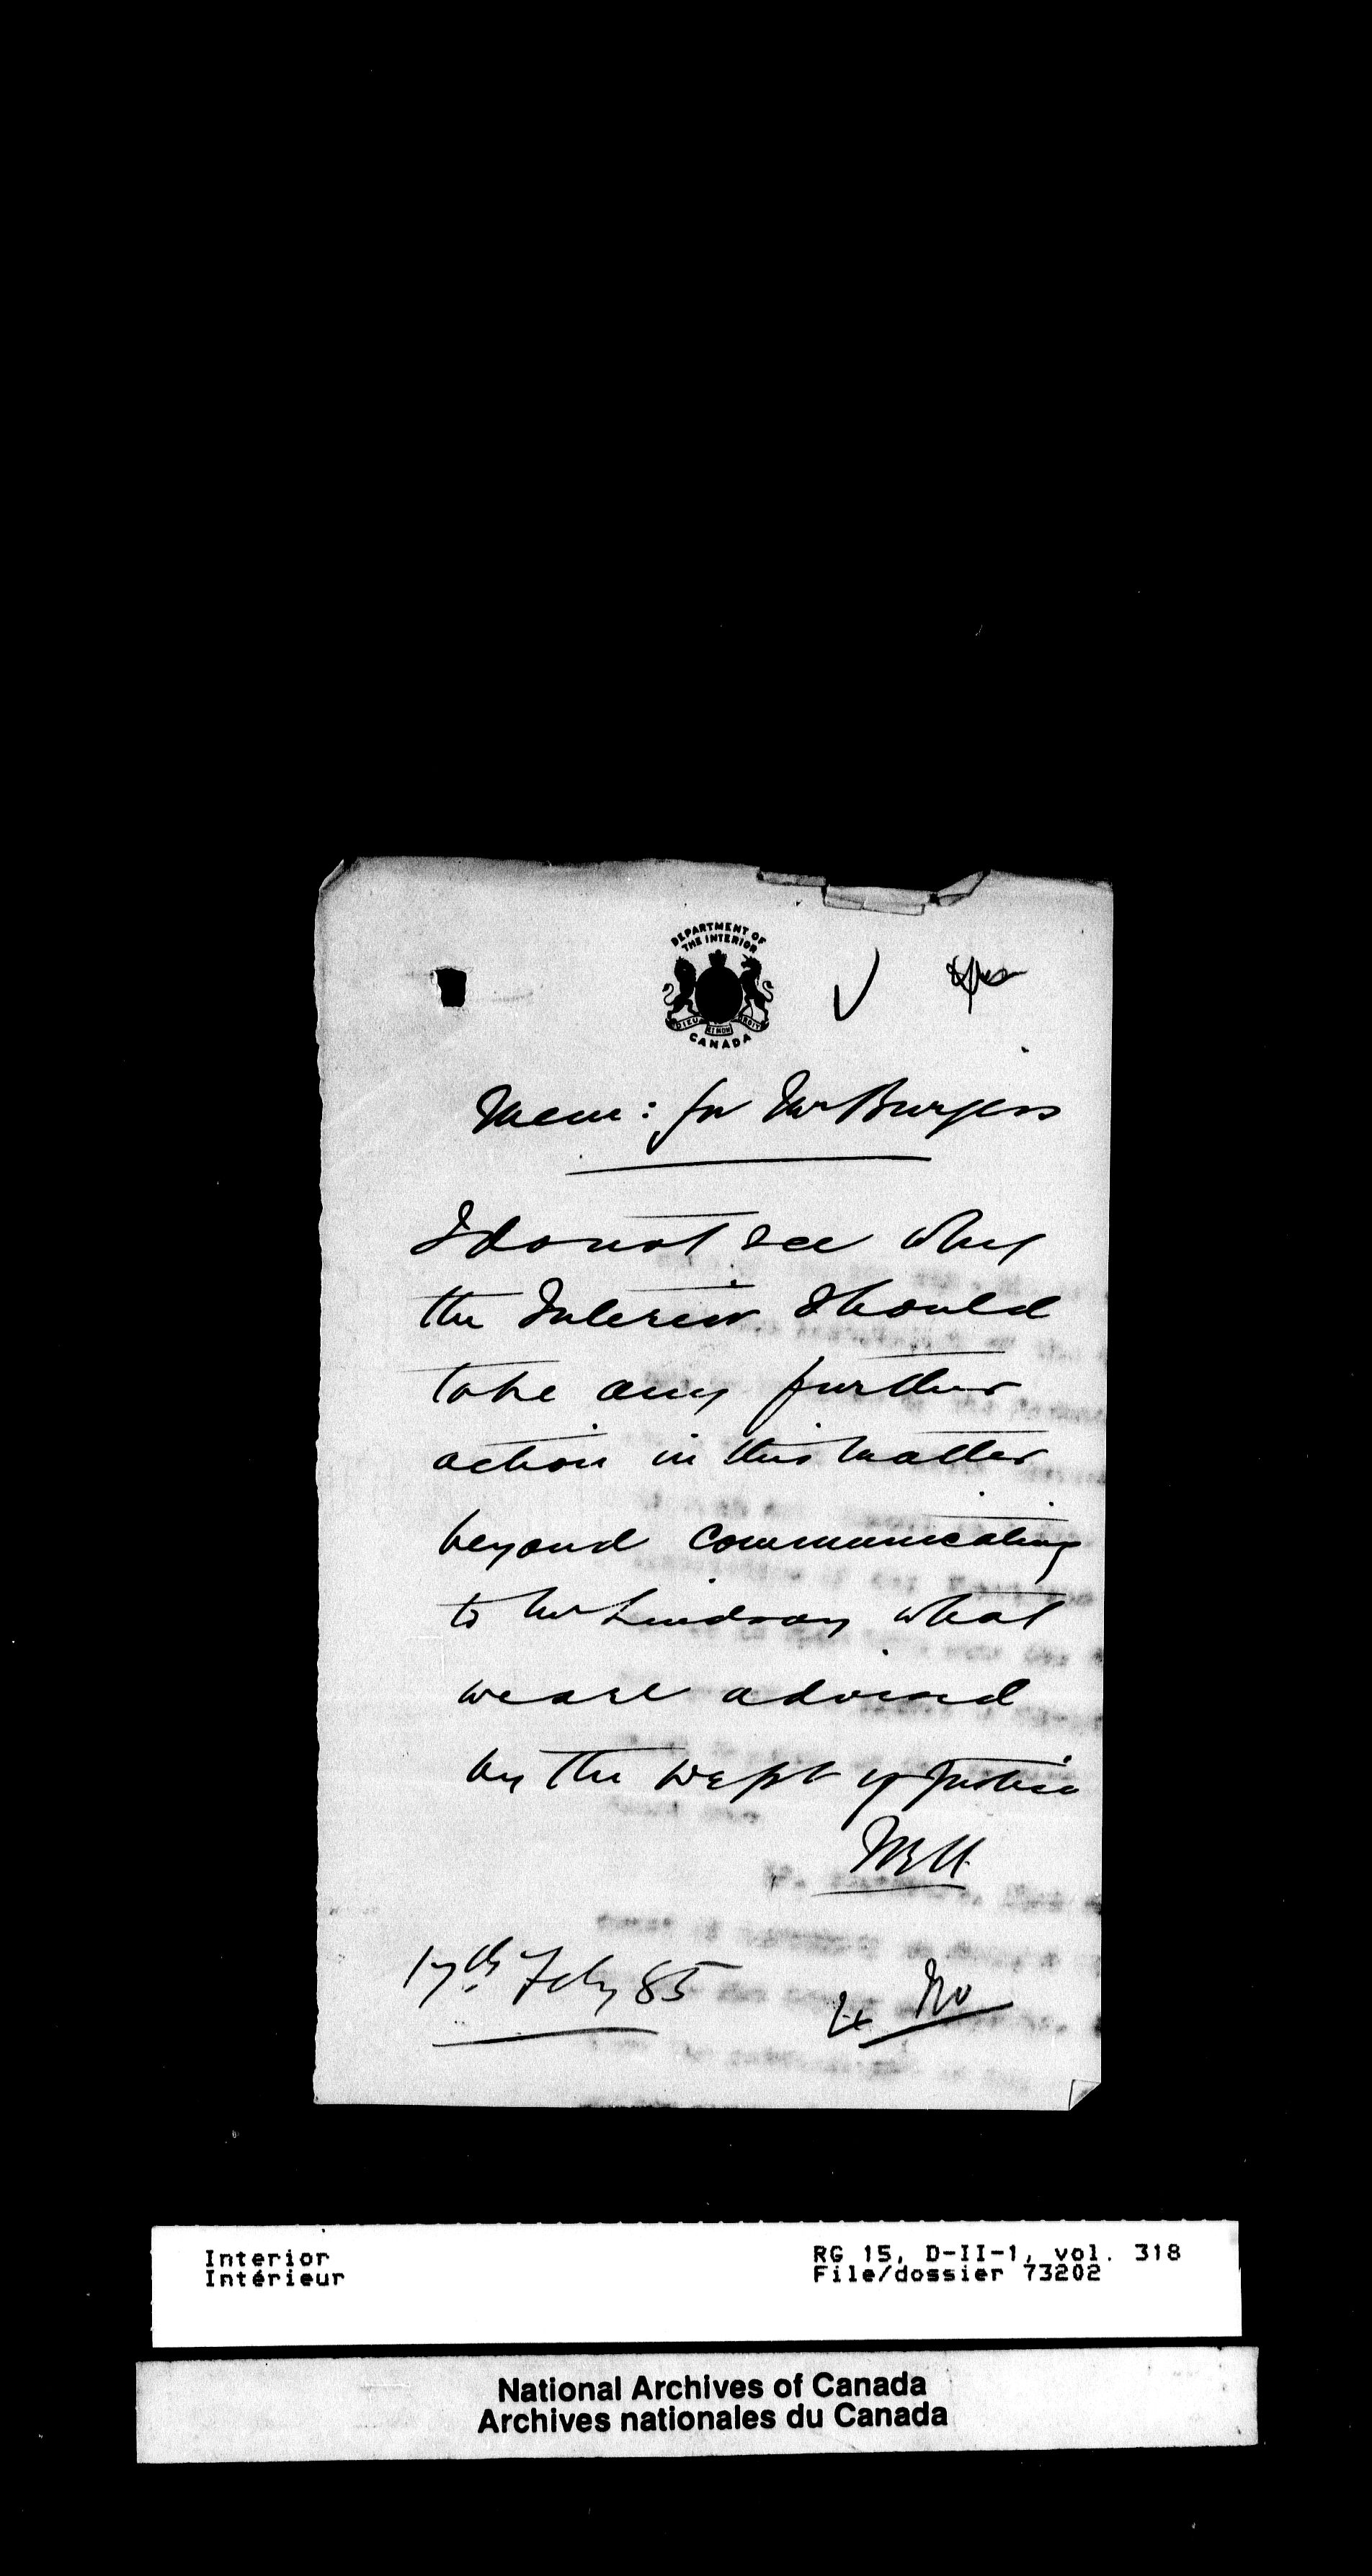 DEPARTMENT OF
THE INTERIOR
DIEU ET MON DROIT
CANADA
Mem: for Mr Burgess
I do not see why
the Interior should
take any further
action in this matter
beyond communicating
to Mr Lindsay what
we are advised
by the Dept of Justice
17th Feby 85
Interior
Intérieur
RG 15, D-II-1, vol. 318
File/dossier 73202
National Archives of Canada
Archives nationales du Canada